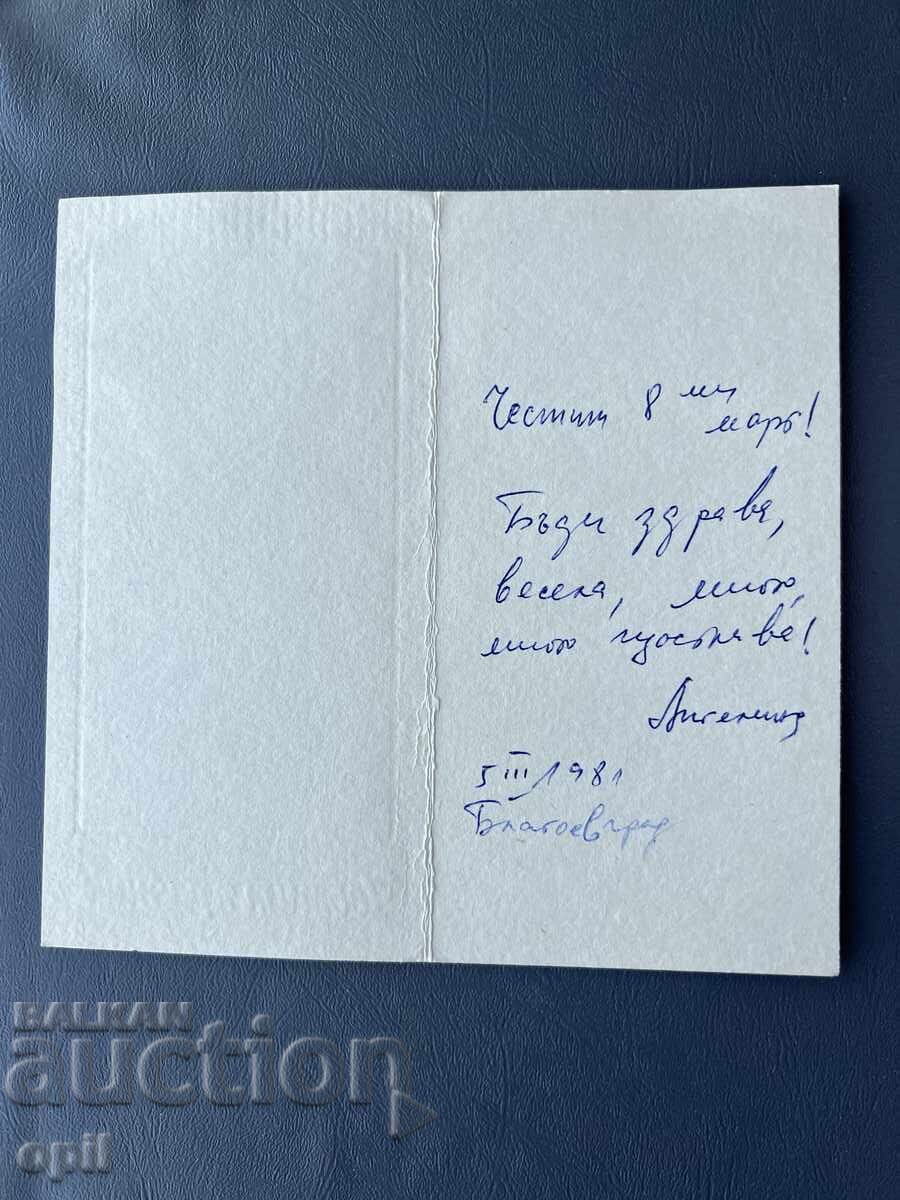 Честит 8 ми
март!
Бъди здрава,
весела, много,
много щастлива!
5 III 1981
Благоевград
BALKAN
auction
opil